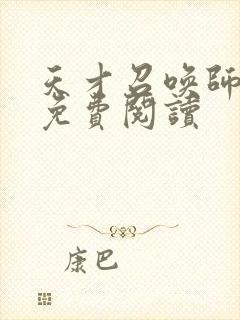 天才召喚師
免費閱讀
康巴